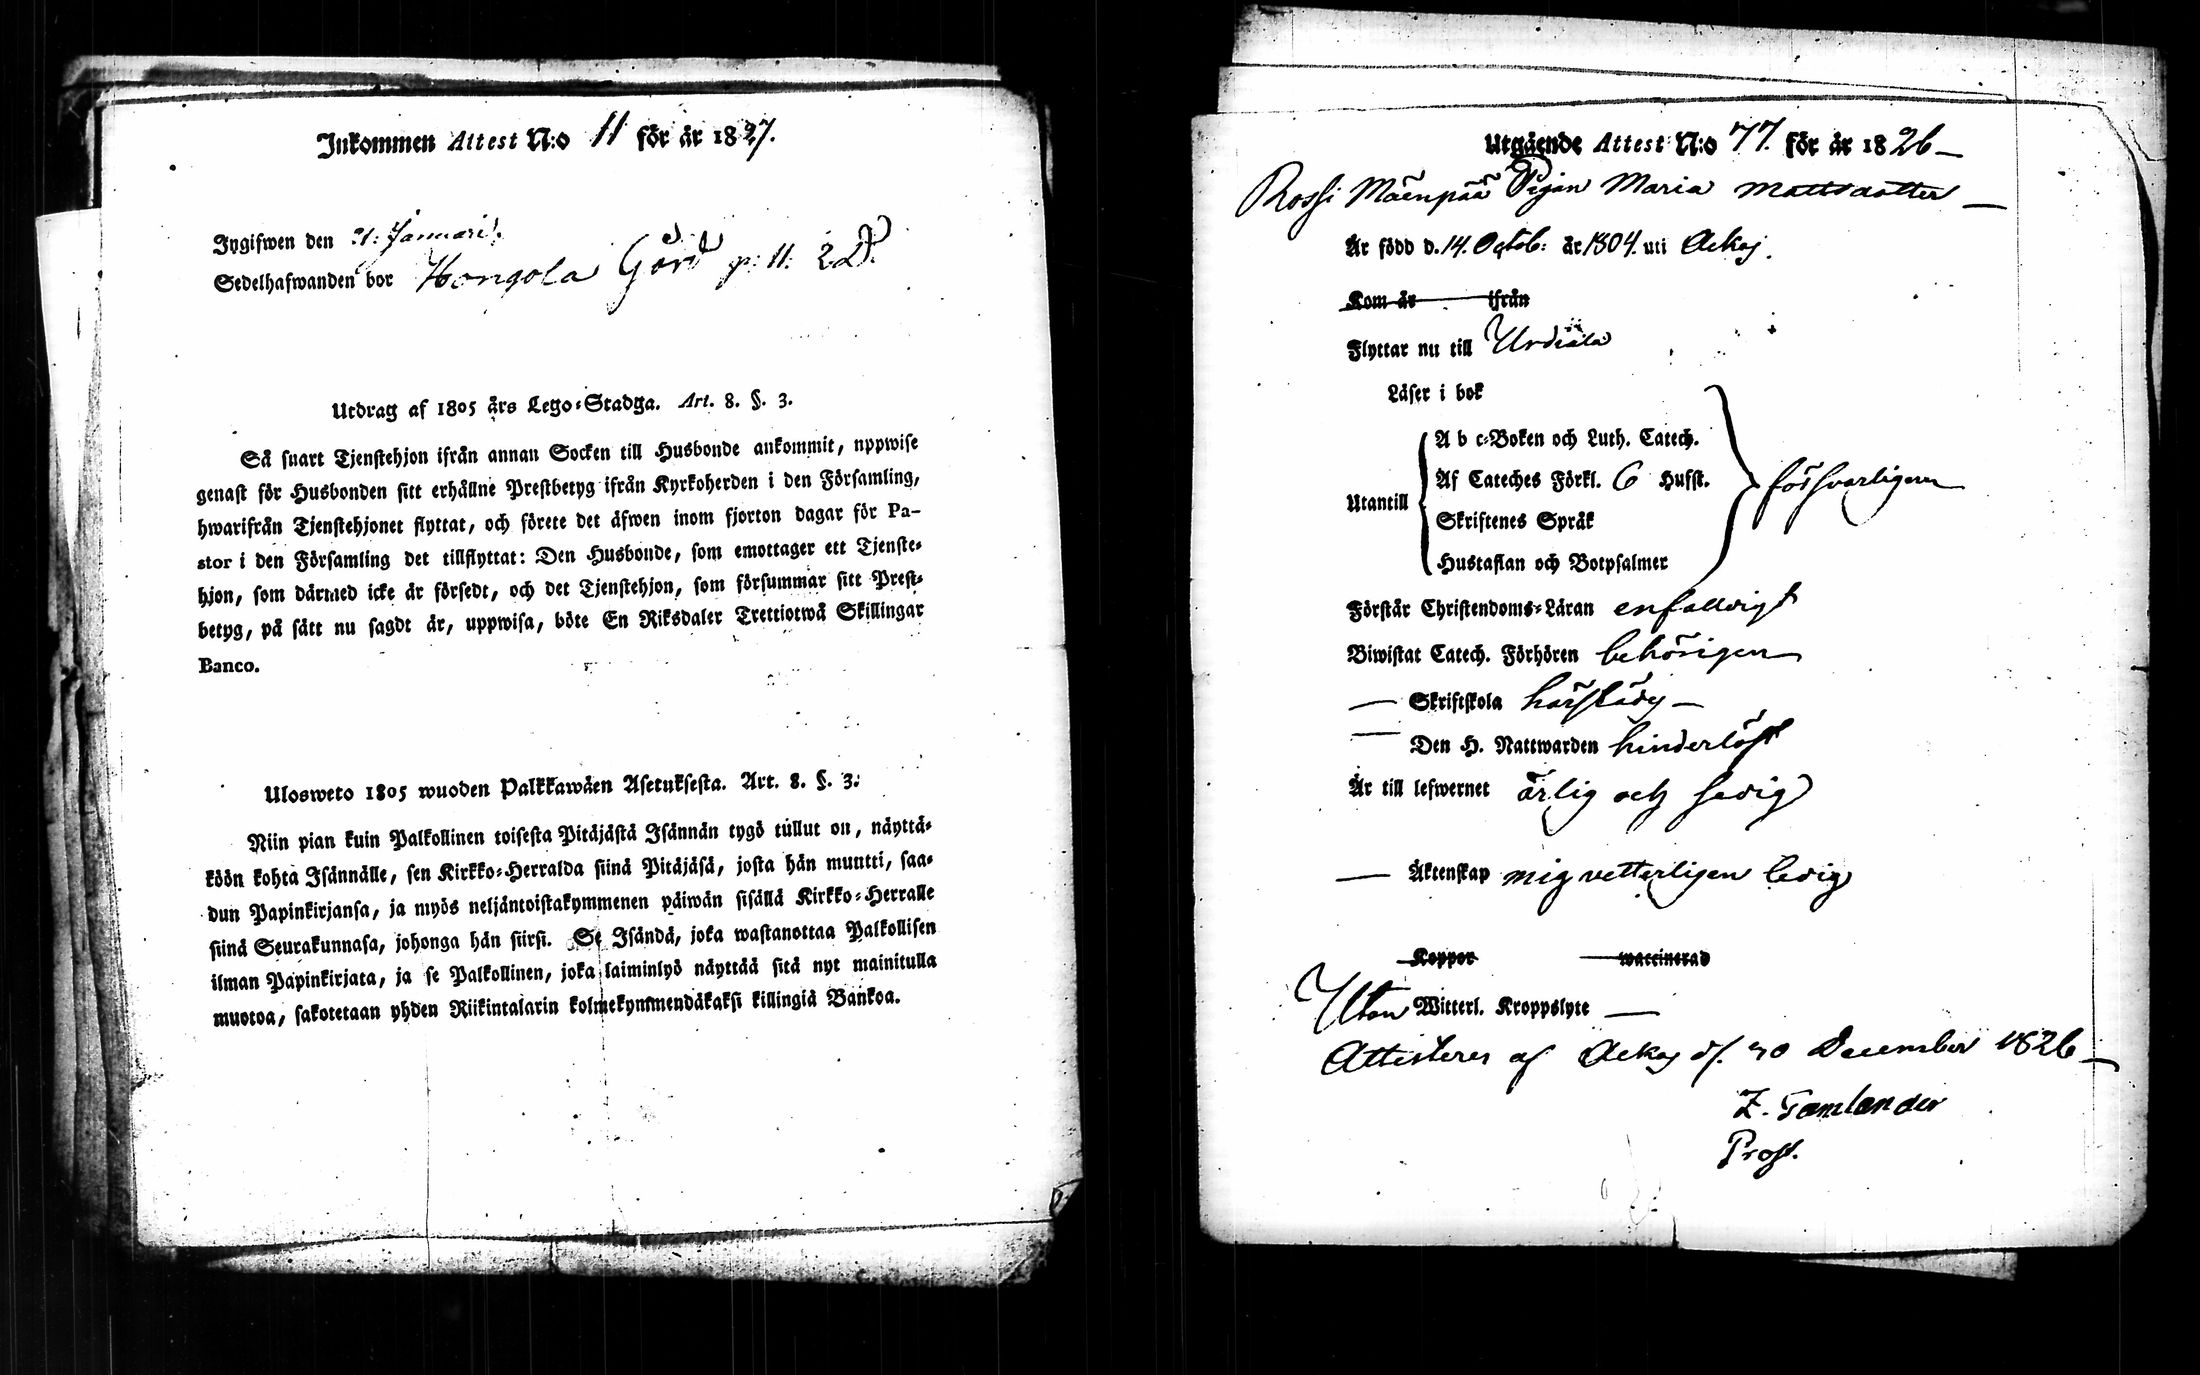 Inkommen Attest N:o 11 för år 1827.
Ingifwen den 21. Januari.
Sedelhafwanden bor Hongola Gård p. 11. 2 D.
Utdrag af 1805 års Lego-Stadga. Art. 8. §. 3.
Så snart Tjenstehjon ifrån annan Socken till Husbonde ankommit, uppwise
genast för Husbonden sitt erhållne Prestbetyg ifrån Kyrkoherden i den Församling,
hwarifrån Tjenstehjonet flyttat, och förete det äfwen inom fjorton dagar för Pa-
stor i den Församling det tillflyttat: Den Husbonde, som emottager ett Tjenste-
hjon, som därmed icke är försedt, och det Tjenstehjon, som försummar sitt Prest-
betyg, på sätt nu sagdt är, uppwisa, böte En Riksdaler Trettiotwå Skillingar
Banco.
Ulosweto 1805 wuoden Palkkawäen Asetuksesta. Art. 8. §. 3.
Niin pian kuin Palkollinen toisesta Pitäjästä Isännän tygö tullut on, näyttä-
köön kohta Isännälle, sen Kirkko-Herralda siinä Pitäjäsä, josta hän muutti, saa-
dun Papinkirjansa, ja myös neljäntoistakymmenen päiwän sisällä Kirkko-Herralle
siinä Seurakunnasa, johonga hän siirsi. Se Isändä, joka wastanottaa Palkollisen
ilman Papinkirjata, ja se Palkollinen, joka laiminlyö näyttää sitä nyt mainitulla
muotoa, sakotetaan yhden Riikintalarin kolmekymmendäkaksi killingiä Bankoa.
Utgående Attest N:o 77. för år 1826
Rossi Mäenpää Pigan Maria Mattsdotter
Är född d. 14. Octob: år 1804. uti Ackas.
Kom år ifrån
Flyttar nu till Urdiala
Läser i bok
A b c-Boken och Luth. Catech.
Af Cateches Förkl. 6 Hufst.
Utantill
försvarligen
Skriftenes Språk
Hustaflan och Botpsalmer
Förstår Christendoms-Läran enfaldigt
Biwistat Catech. Förhören behörigen
— Skriftskola härstädes —
— Den H. Nattwarden hinderlöst
Är till lefwernet ärlig och sedig
— Äktenskap mig vetterligen ledig
Koppor waccinerad
Utan Witterl. Kroppslyte —
Attesterer af Ackas d. 30 December 1826 —
Z. Tamlander
Prost.